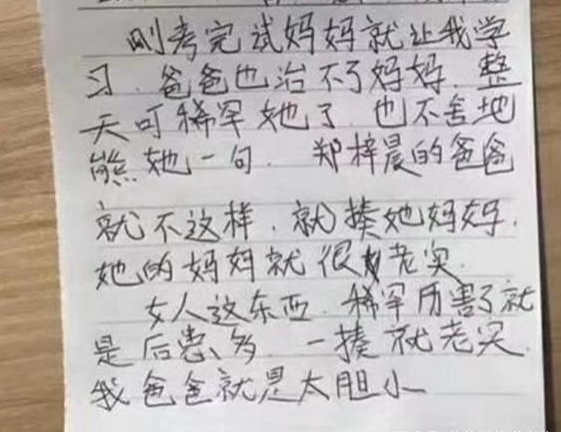 刚考完试妈妈就让我学
习.爸爸也治不了妈妈.整
天可稀罕她了.也不舍地
熊她一句.郑梓晨的爸爸
就不这样.就揍她妈妈.
她的妈妈就很老实.
女人这东西.稀罕历害了就
是后患多.一揍就老实.
我爸爸就是太胆小